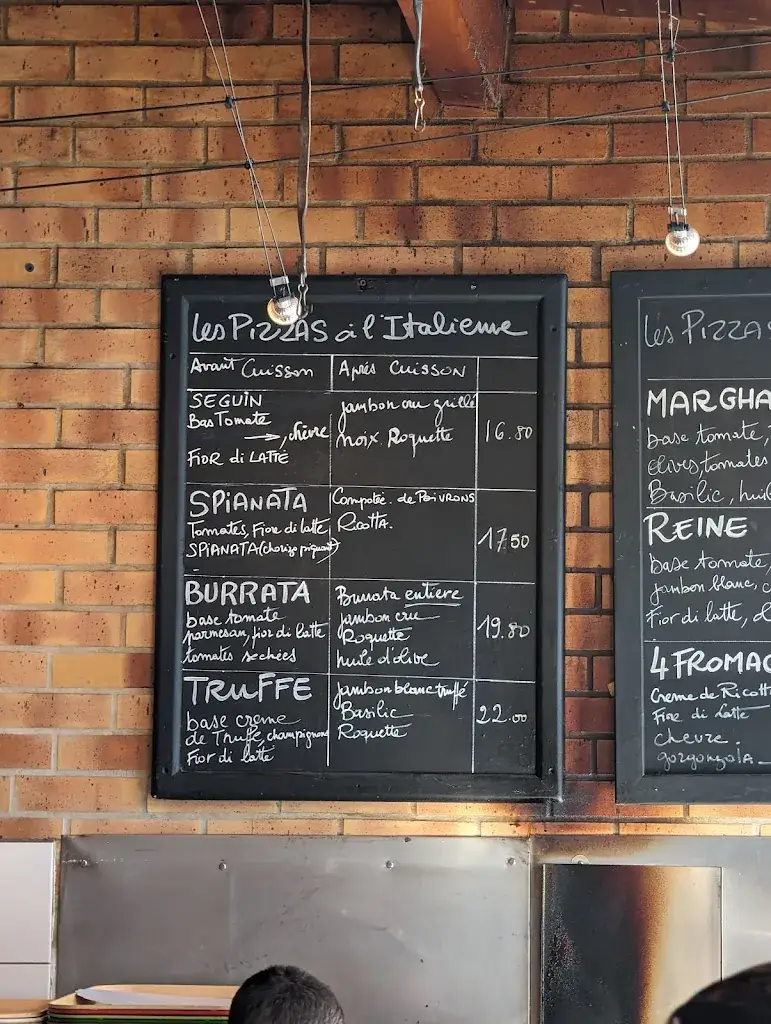 Les PIZZAS à l'Italienne
Avant Cuisson
Après Cuisson
SEGUIN
Bas Tomate
→, chèvre
FIOR di LATTE
jambon cru grillé
noix. Roquette
16.80
SPIANATA
Tomates, Fiore di latte
SPIANATA (chorizo piquant)
Compotée de POIVRONS
Ricotta.
17.50
BURRATA
base tomate
parmesan, fior di latte
tomates sechées
Burrata entiere
jambon cru
Roquette
huile d'olive
19.80
TRUFFE
base creme
de Truffe, champignons
Fior di latte
jambon blanc truffé
Basilic
Roquette
22.00
Les PIZZAS
MARGHA
base tomate,
olives, tomates
Basilic, huil
REINE
base tomate,
jambon blanc, c
Fior di latte, ol
4 FROMAG
Creme de Ricott
Fior di latte
chevre.
gorgonzola